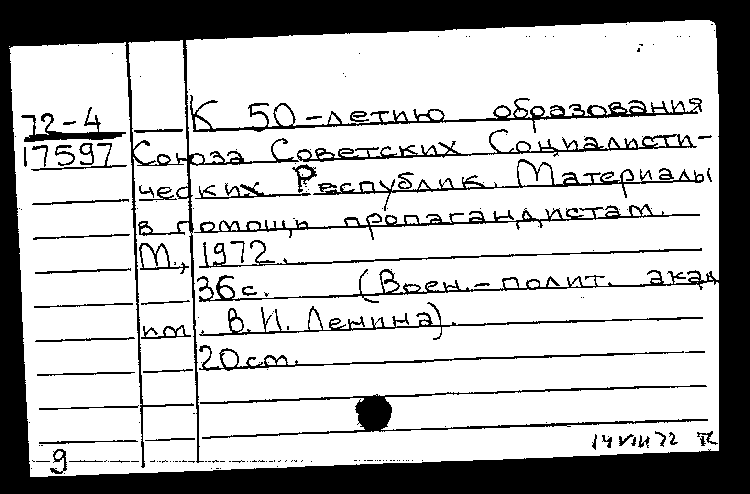 72-4
17597
К 50-летию образования
Союза Советских Социалисти-
ческих Республик. Материалы
в помощь пропагандистам.
М., 1972.
36с. (Воен.-полит. акад
им. В. И. Ленина).
20см.
9
14 VIII 72